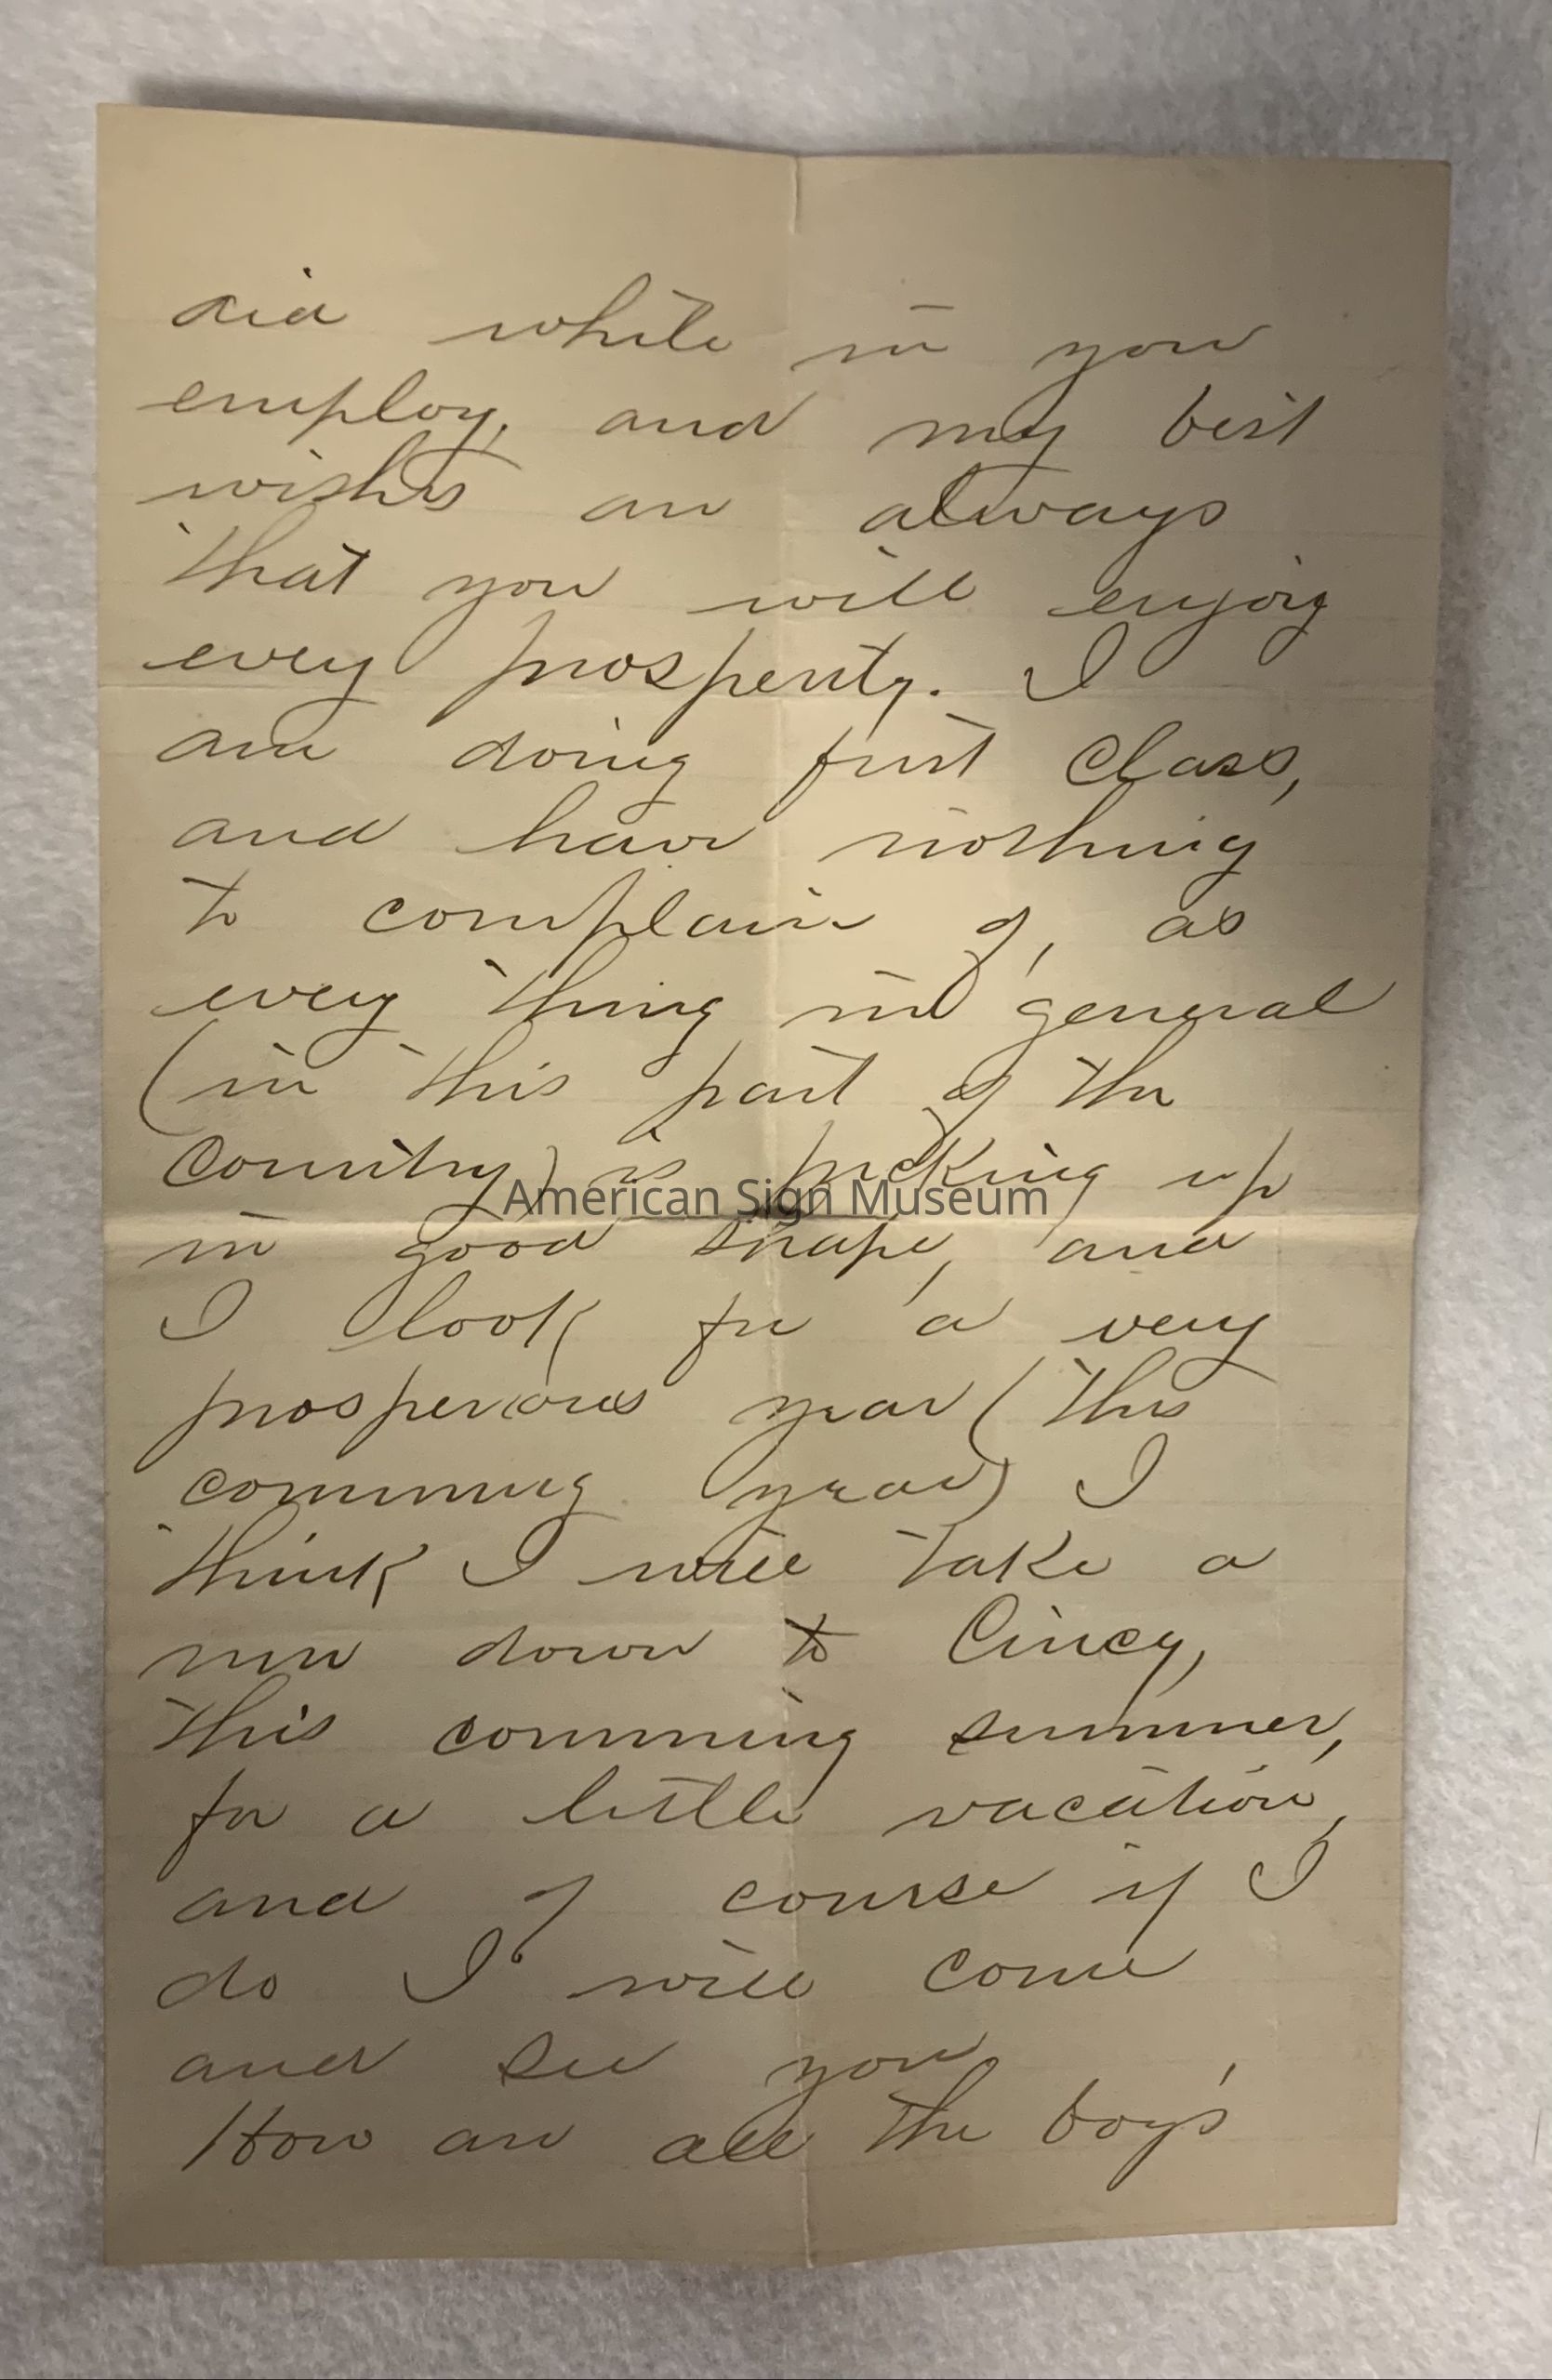 did while in your
employ, and my best
wishes are always
that you will enjoy
every prosperity. I
am doing first class,
and have nothing
to complain of, as
every thing in general
(in this part of the
country) is picking up
American Sign Museum
in good shape, and
I look for a very
prosperious year (this
comming year) I
think I will take a
run down to Cincy,
this comming summer,
for a little vacation,
and of course if I
do I will come
and see you
How are all the boy's